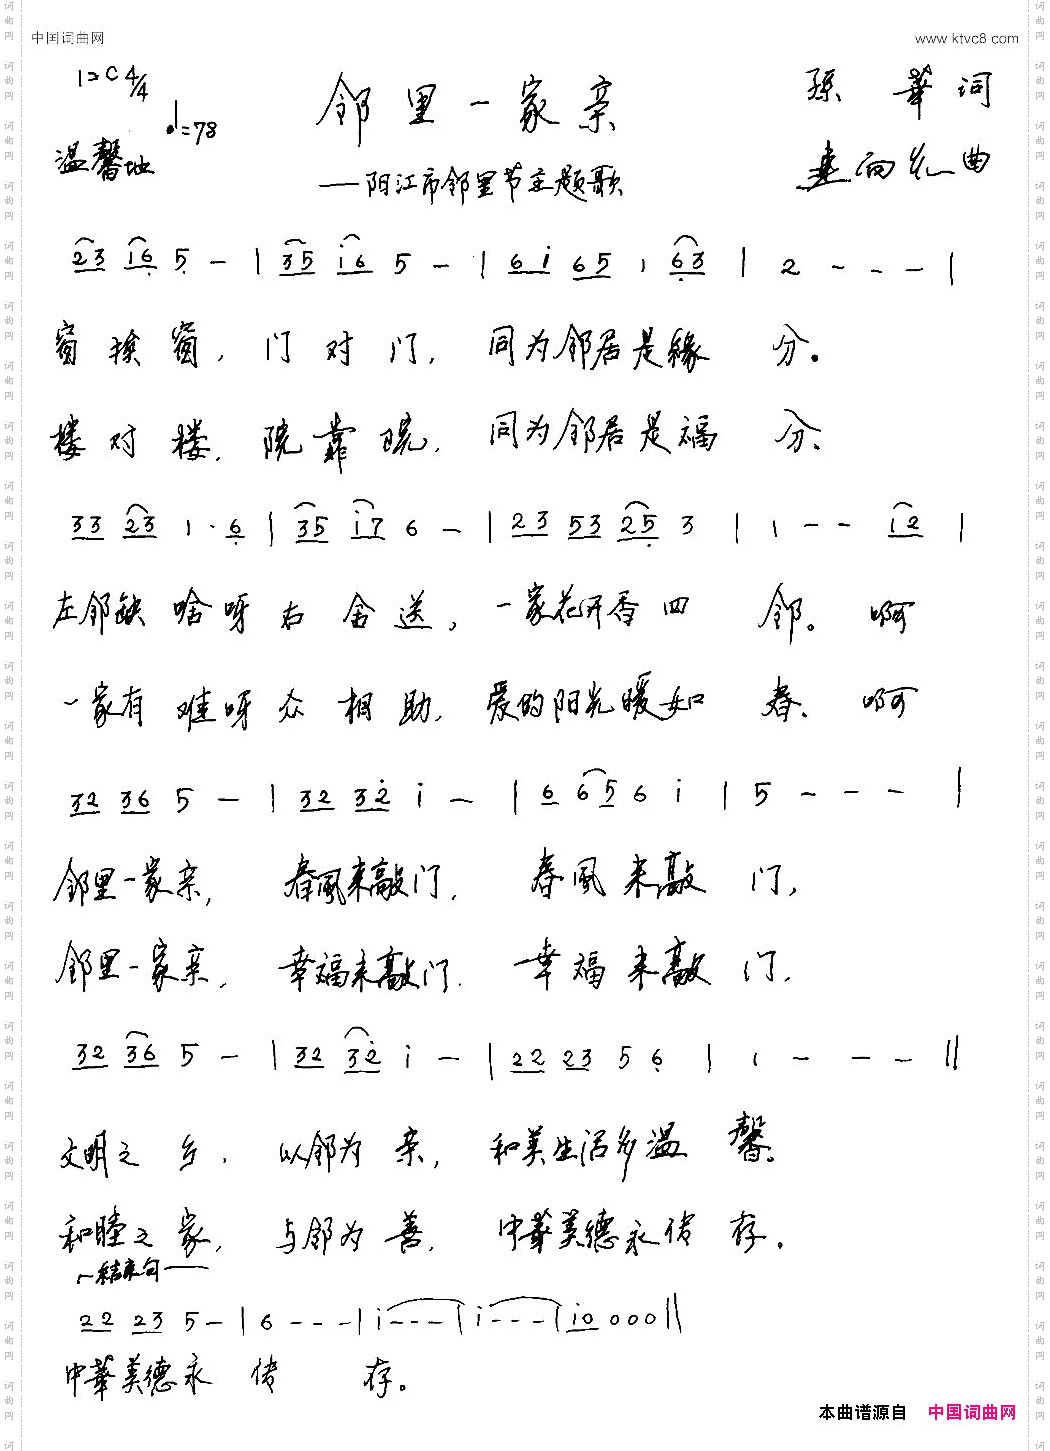 中国词曲网 www.ktvc8.com
1=C 4/4
♩=78
温馨地
邻里一家亲
——阳江市邻里节主题歌
孫華词
向红曲
23 16 5 - | 35 i6 5 - | 6i 65 1 63 | 2 - - - |
窗挨窗，门对门，同为邻居是缘分。
楼对楼，院靠院，同为邻居是福分。
33 23 1· 6 | 35 i7 6 - | 23 53 25 3 | 1 - - i2 |
左邻缺啥呀右舍送，一家花开香四邻。啊
一家有难呀众相助，爱的阳光暖如春。啊
32 36 5 - | 32 32 i - | 6 65 6 i | 5 - - - |
邻里一家亲，春風来敲门，春風来敲门，
邻里一家亲，幸福来敲门，幸福来敲门，
32 36 5 - | 32 32 i - | 22 23 5 6 | 1 - - - ||
文明之乡，以邻为亲，和美生活多温馨。
和睦之家，与邻为善，中華美德永传存。
结束句
22 23 5 - | 6 - - - | i - - - | i - - - | i0 0 0 0 ||
中華美德永传存。
本曲谱源自 中国词曲网